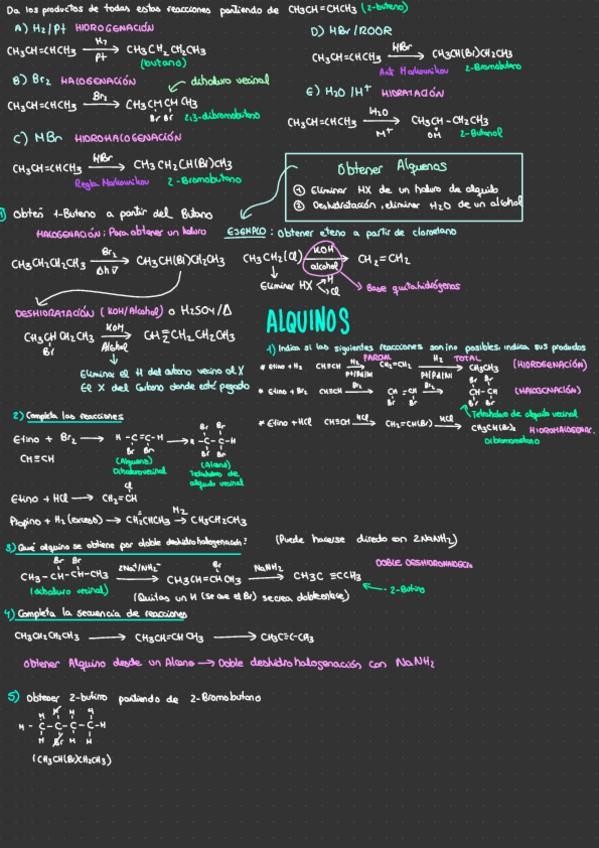 Da los productos de todas estas reacciones partiendo de CH3CH=CHCH3 (2-buteno)
A) H2/Pt HIDROGENACIÓN
CH3CH=CHCH3 H2 Pt CH3CH2CH2CH3
(butano)
B) Br2 HALOGENACIÓN dihaluro vecinal
CH3CH=CHCH3 Br2 CH3CHCHCH3
Br Br 2,3-dibromobutano
C) HBr HIDROHALOGENACIÓN
CH3CH=CHCH3 HBr CH3CH2CH(Br)CH3
Regla Markownikov 2-Bromobutano
D) HBr/ROOR
CH3CH=CHCH3 HBr CH3CH(Br)CH2CH3
Anti Markownikov 2-Bromobutano
E) H2O/H+ HIDRATACIÓN
CH3CH=CHCH3 H2O H+ CH3CH-CH2CH3
OH 2-Butanol
Obtener Alquenos
① Eliminar HX de un haluro de alquilo
② Deshidratación, eliminar H2O de un alcohol
1) Obtén 1-Buteno a partir del Butano
HALOGENACIÓN: Para obtener un haluro
CH3CH2CH2CH3 Br2 Δhν CH3CH(Br)CH2CH3
EJEMPLO: Obtener eteno a partir de cloroetano
CH3CH2(Cl) KOH alcohol CH2=CH2
Eliminar HX H Cl
Base quita hidrógenos
DESHIDRATACIÓN (KOH/Alcohol) o H2SO4/Δ
CH3CHCH2CH3 KOH Alcohol CH2=CHCH2CH3
Br
Elimina el H del carbono vecino al X
El X del Carbono donde esté pegado
ALQUINOS
1) Indica si las siguientes reacciones son o no posibles, indica sus productos
PARCIAL TOTAL
* Etino + H2 CH≡CH H2 Pt/Pd/Ni CH2=CH2 H2 Pt/Pd/Ni CH3CH3 (HIDROGENACIÓN)
Br Br
* Etino + Br2 CH≡CH Br2 CH=CH Br2 CH-CH (HALOGENACIÓN)
Br Br Br Br
Tetrahaluro de alquilo vecinal
* Etino + HCl CH≡CH HCl CH2=CH(Br) HCl CH3CH(Br)2 HIDROHALOGENAC.
Dibromometano
2) Completa las reacciones
Etino + Br2 H-C=C-H H-C-C-H
CH≡CH Br Br Br Br Br Br
(Alqueno) Dihaluro vecinal
(Alcano) Tetrahaluro de alquilo vecinal
Cl
Etino + HCl CH2=CH
Propino + H2 (exceso) CH2=CHCH3 H2 CH3CH2CH3
3) Qué alquino se obtiene por doble deshidrohalogenación? (Puede hacerse directo con 2NaNH2)
Br Br Br
CH3-CH-CH-CH3 2Na+/NH2- CH3CH=CHCH3 NaNH2 CH3C≡CCH3
DOBLE DESHIDROHALOGEN.
(dihaluro vecinal) (Quitas un H (se crea el Br) se crea doble enlace)
2-Butino
4) Completa la secuencia de reacciones
CH3CH2CH2CH3 CH3CH=CHCH3 CH3C≡C-CH3
Obtener Alquino desde un Alcano → Doble deshidrohalogenación con NaNH2
5) Obtener 2-butino partiendo de 2-Bromobutano
H H H H
H-C-C-C-C-H
H Br H H
(CH3CH(Br)CH2CH3)